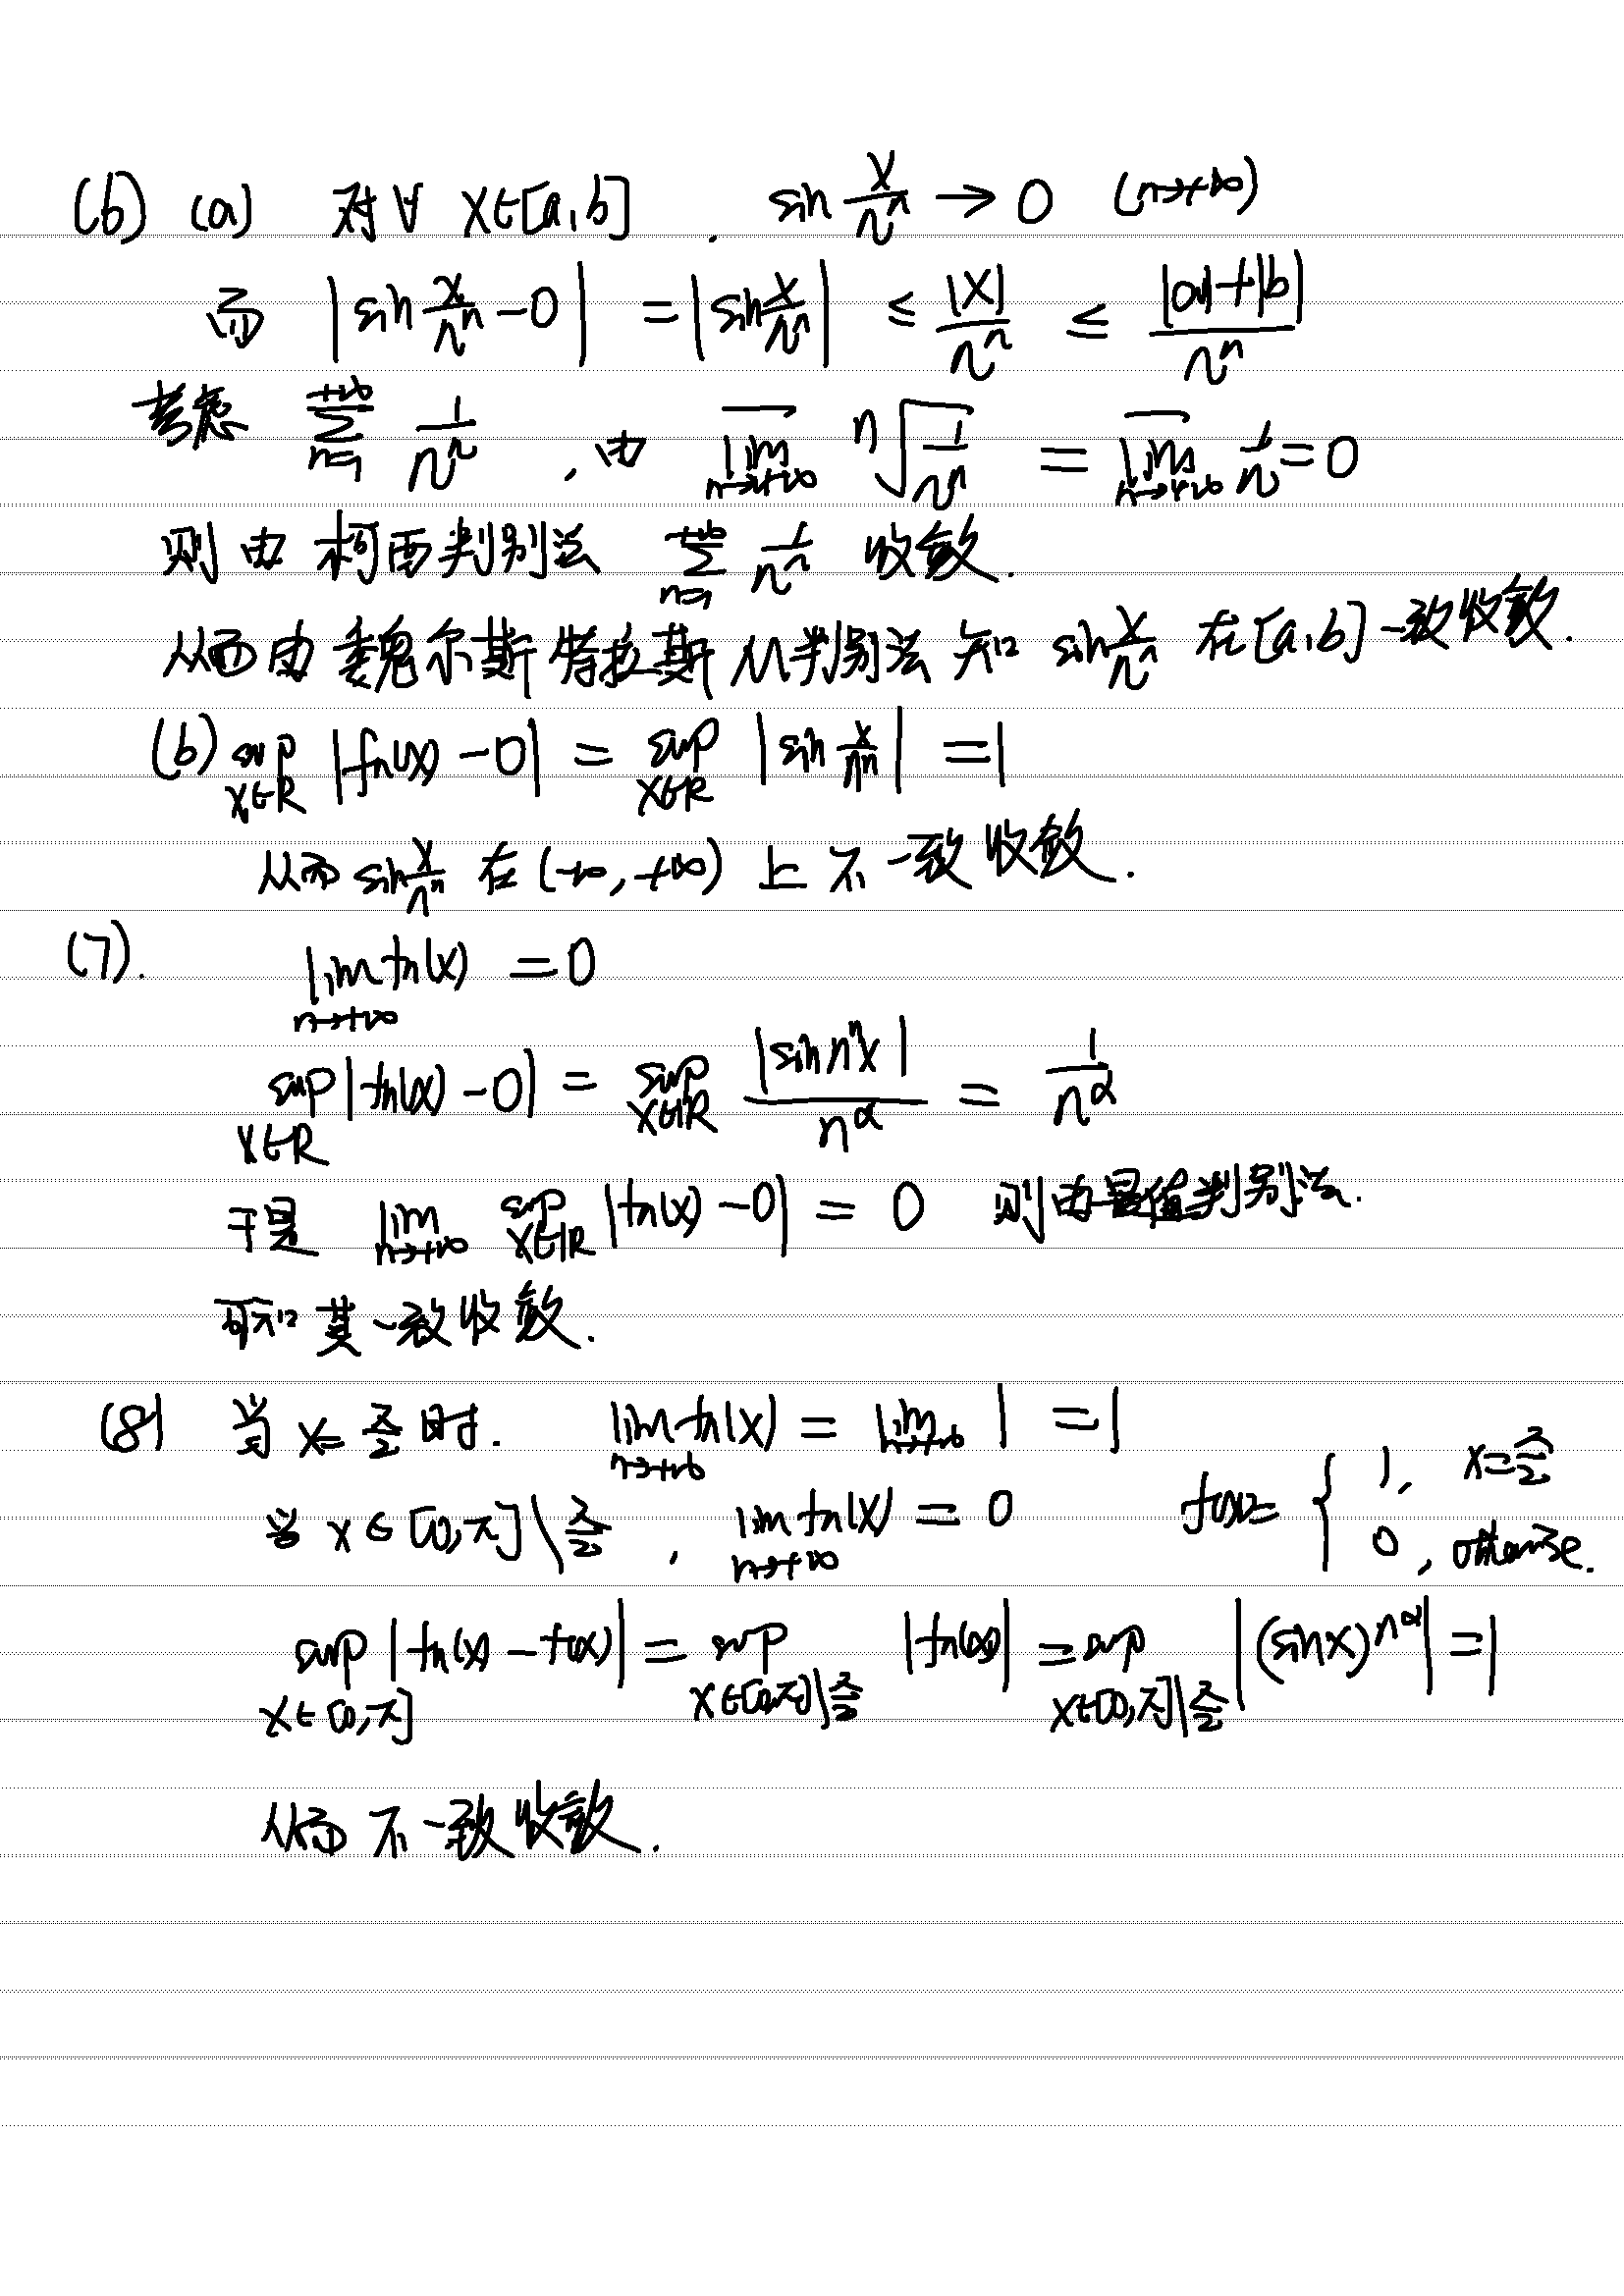 (6) (a) 对∀ x∈[a,b] , sin x/nⁿ → 0 (n→+∞)
而 |sin x/nⁿ - 0| = |sin x/nⁿ| ≤ |x|/nⁿ ≤ (|a|+|b|)/nⁿ
考虑 ∑_{n=1}^{+∞} 1/nⁿ , 由 \overline{lim}_{n→+∞} ⁿ√(1/nⁿ) = \overline{lim}_{n→+∞} 1/n = 0
则由柯西判别法 ∑_{n=1}^{+∞} 1/nⁿ 收敛.
从而由魏尔斯特拉斯M判别法知 sin x/nⁿ 在[a,b]一致收敛.
(b) sup_{x∈R} |fn(x) - 0| = sup_{x∈R} |sin x/nⁿ| = 1
从而 sin x/nⁿ 在(-∞,+∞)上不一致收敛.
(7). lim_{n→+∞} fn(x) = 0
sup_{x∈R} |fn(x) - 0| = sup_{x∈R} |sin nⁿx|/n^α = 1/n^α
于是 lim_{n→+∞} sup_{x∈R} |fn(x) - 0| = 0 则由最值判别法.
可知其一致收敛.
(8) 当 x=π/2 时. lim_{n→+∞} fn(x) = lim_{n→+∞} 1 = 1
当 x∈[0,π]\π/2 , lim_{n→+∞} fn(x) = 0 f(x)= { 1, x=π/2 ; 0, otherwise.
sup_{x∈[0,π]} |fn(x) - f(x)| = sup_{x∈[0,π]\π/2} |fn(x)| = sup_{x∈[0,π]\π/2} |(sinx)^{n^α}| = 1
从而不一致收敛.